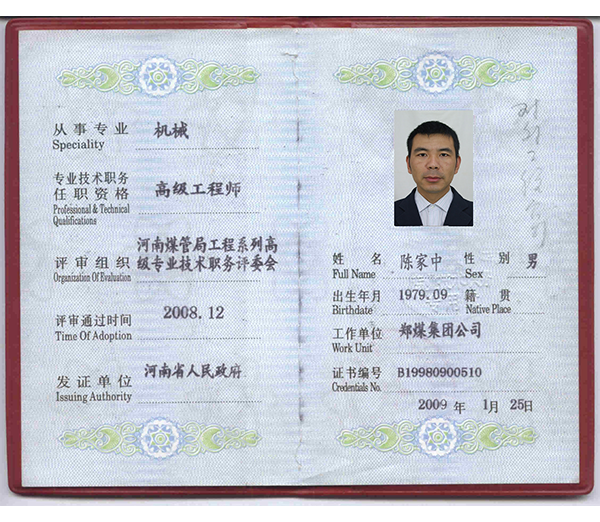 从事专业 机械
Speciality
专业技术职务
任职资格 高级工程师
Professional & Technical
Qualifications
河南煤管局工程系列高
评审组织 级专业技术职务评委会
Organization Of Evaluation
评审通过时间 2008.12
Time Of Adoption
发证单位 河南省人民政府
Issuing Authority
姓名 陈家中 性别 男
Full Name Sex
出生年月 1979.09 籍贯
Birthdate Native Place
工作单位 郑煤集团公司
Work Unit
证书编号 B19980900510
Credentials No.
2009 年 1月 25日